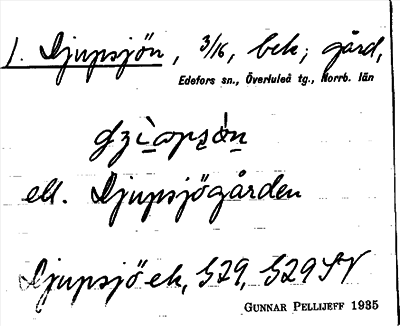 1. Djupsjön, 3/16, bek; gård,
Edefors sn., Överluleå tg., Norrb. län
ell. Djupsjögården
Djupsjö ek, S29, S29 SV
GUNNAR PELLIJEFF 1935